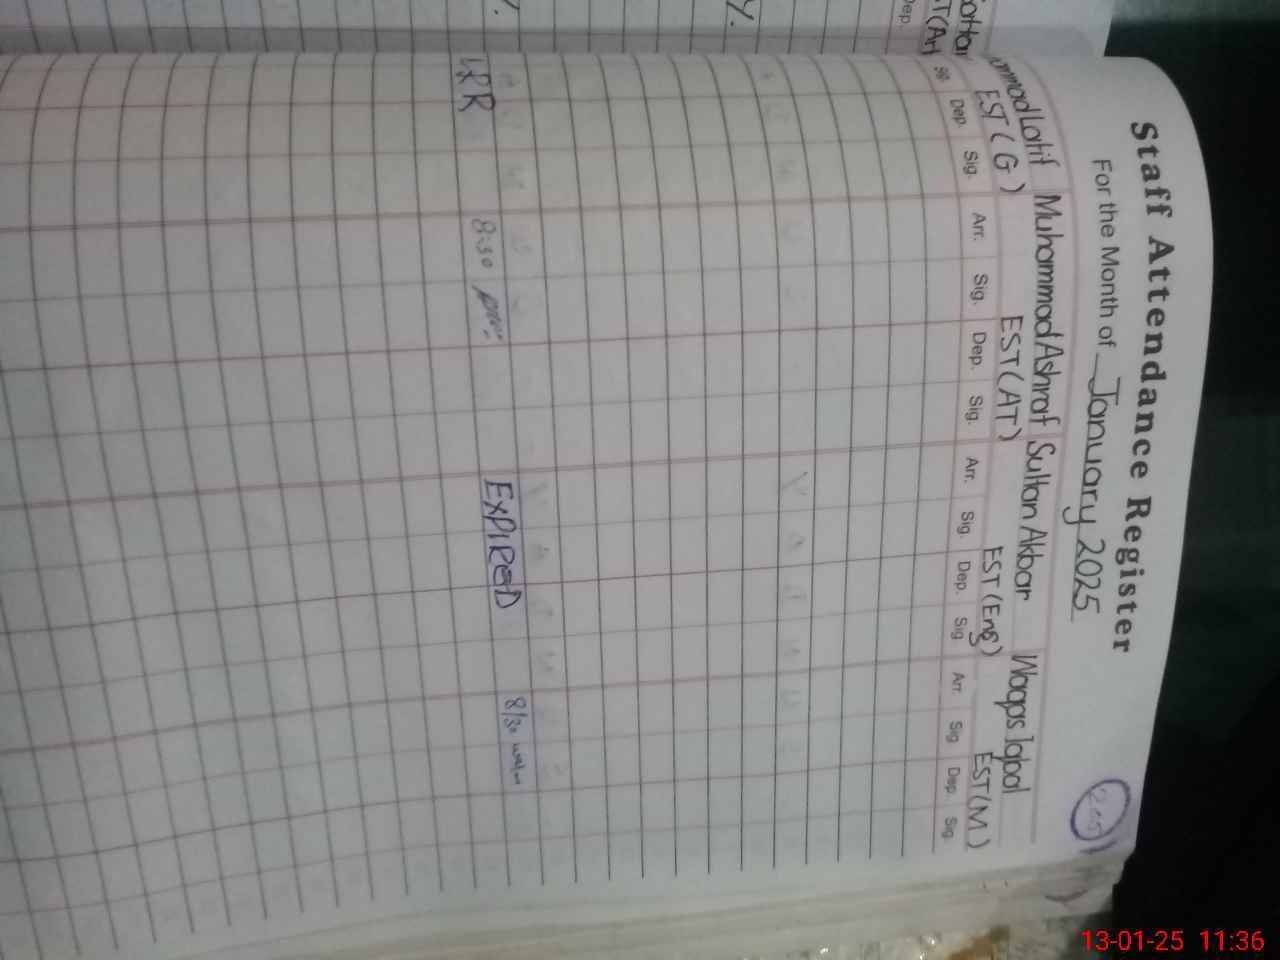 Staff Attendance Register
For the Month of January 2025
ammad Latif Muhammad Ashraf Sultan Akbar Waqas Iqbal
EST(G) EST(AT) EST(Eng) EST(M)
Sig Dep. Sig. Arr. Sig. Dep. Sig. Arr. Sig. Dep. Sig Arr. Sig Dep Sig
Dep.
LRR 8:30 EXPIRED 8/30
13-01-25 11:36